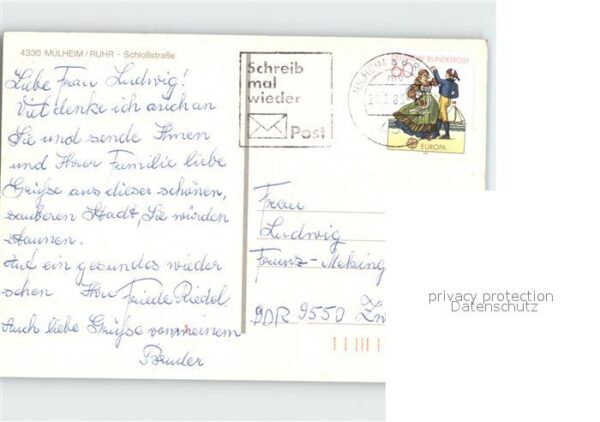 4330 MÜLHEIM / RUHR - Schloßstraße
Liebe Frau Ludwig!
Viel denke ich auch an
Sie und sende Ihnen
und Ihrer Familie liebe
Grüße aus dieser schönen,
sauberen Stadt, Sie würden
staunen.
Auf ein gesundes wieder
sehen Ihre Friede Riedel.
Auch liebe Grüße von meinem
Bruder
Schreib
mal
wieder
Post
MÜLHEIM
BUNDESPOST
60
EUROPA
Frau
Ludwig
Franz-Mehring
DDR 9550
privacy protection
Datenschutz